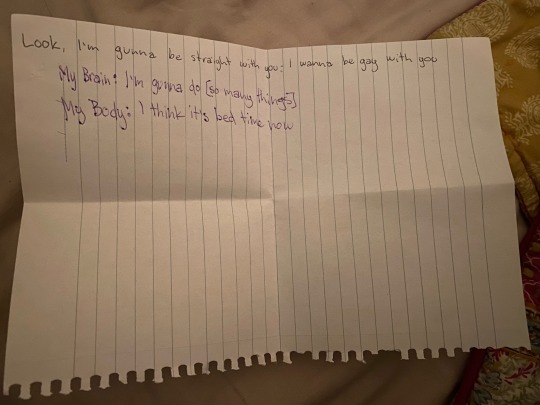 Look, I'm gunna be straight with you: I wanna be gay with you
My Brain: I'm gunna do [so many things]
My Body: I think it's bed time now